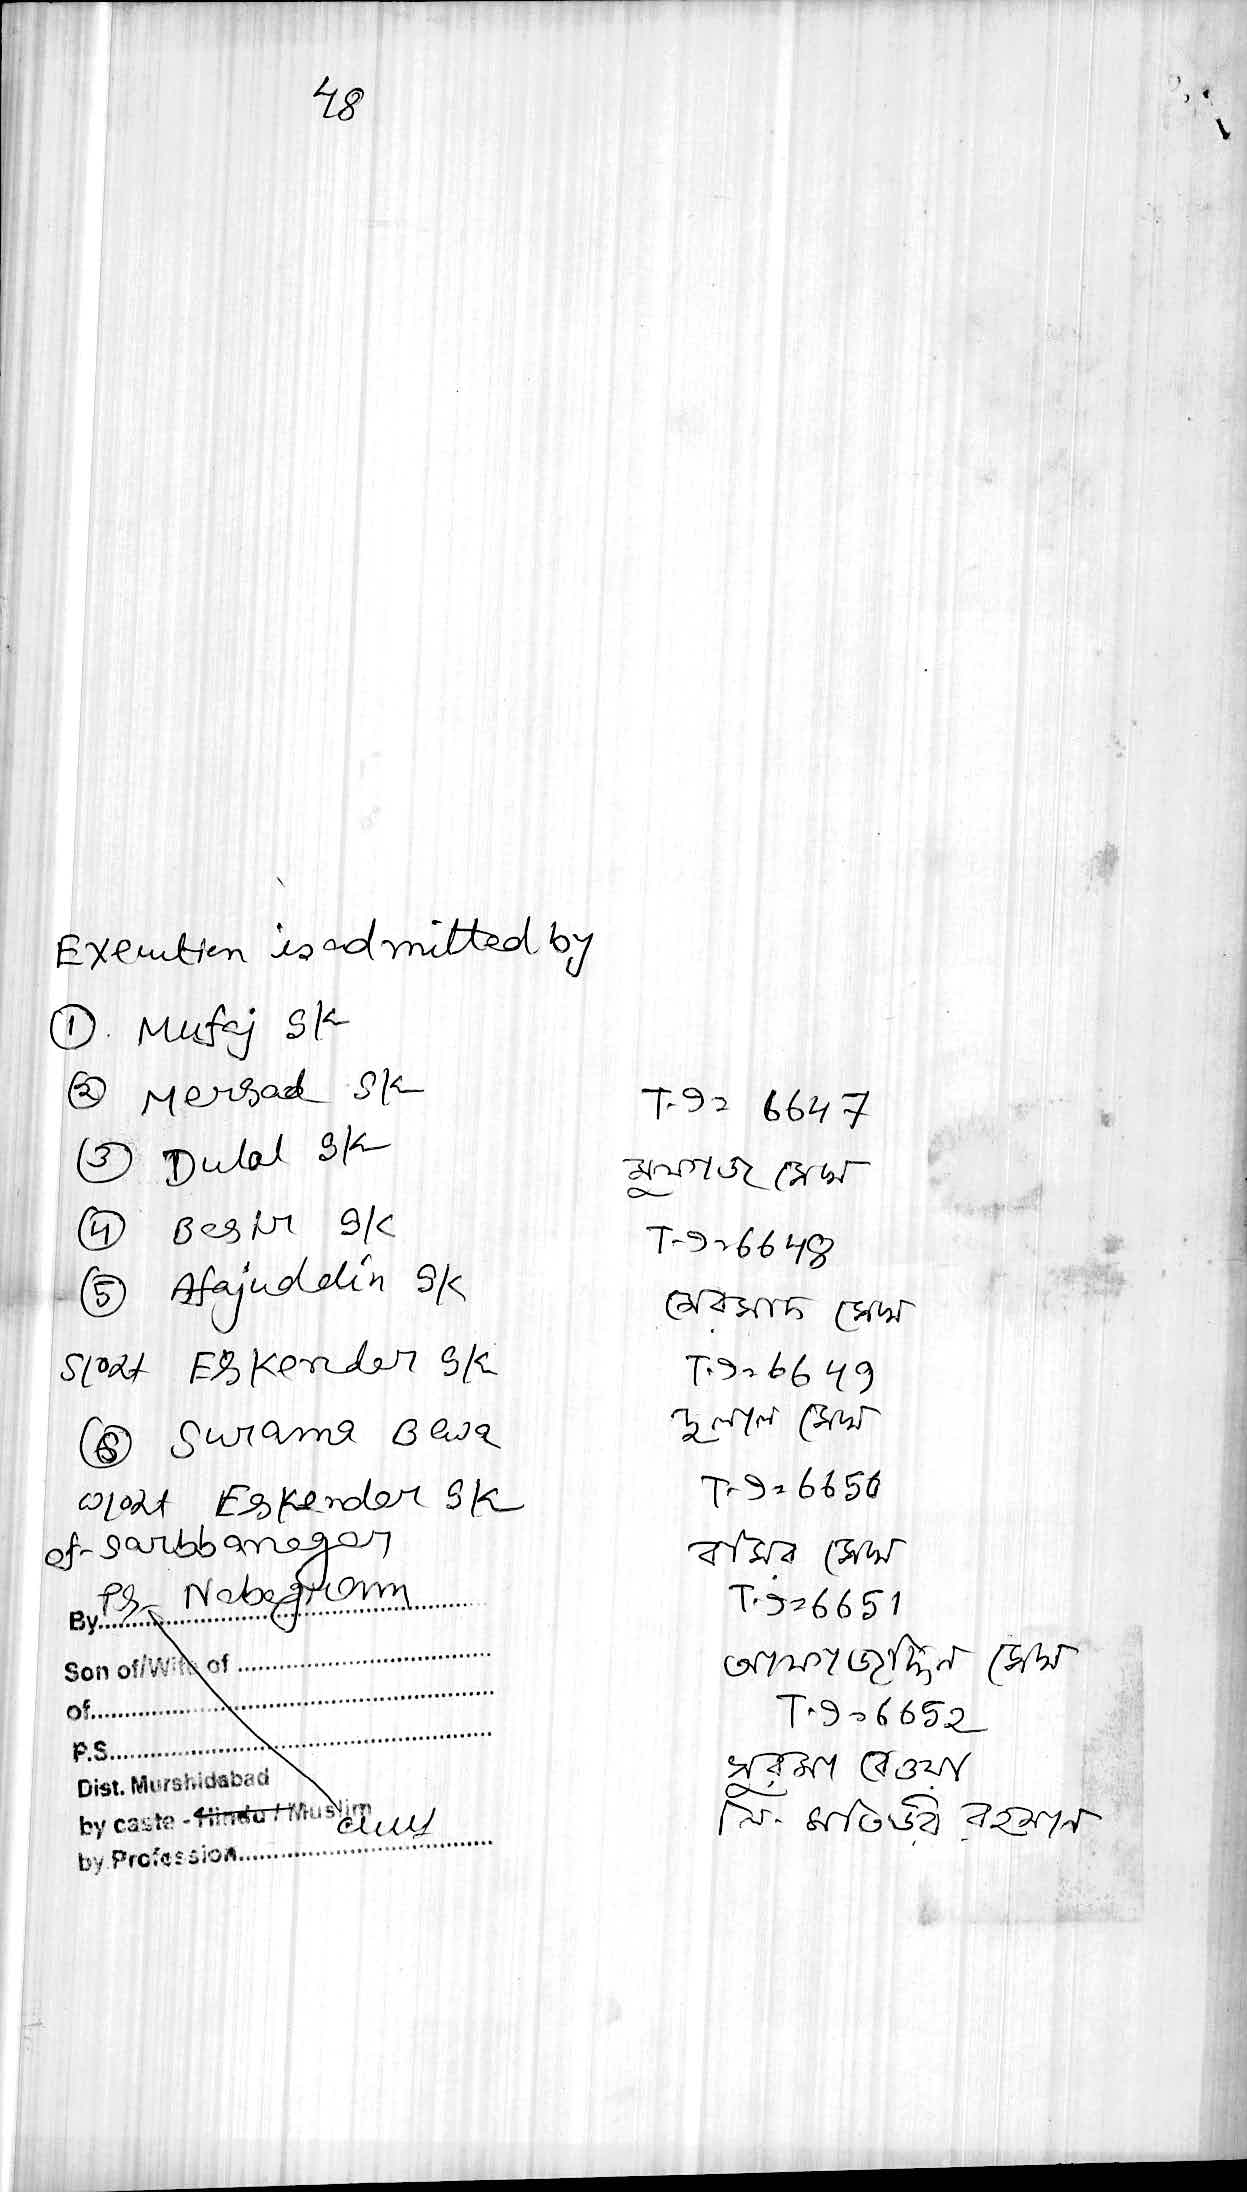 48
Execution is admitted by
① Mufaj Sk
② Mersad Sk
③ Dulal Sk
④ Besir Sk
⑤ Afajuddin Sk
S/o Lt Eskender Sk
⑥ Surama Bewa
W/o Lt Eskender Sk
of- Sarbbanagar
PS- Nabagram
By
Son of/Wife of
of
P.S.
Dist. Murshidabad
by caste - Hindu / Muslim
by Profession
T.I = 6647
মুফাজ সেখ
T.I = 6648
মেরসাদ সেখ
T.I = 6649
দুলাল সেখ
T.I = 6650
বসির সেখ
T.I = 6651
আফাজদ্দিন সেখ
T.I = 6652
সুরমা বেওয়া
লি. মতিউর রহমান